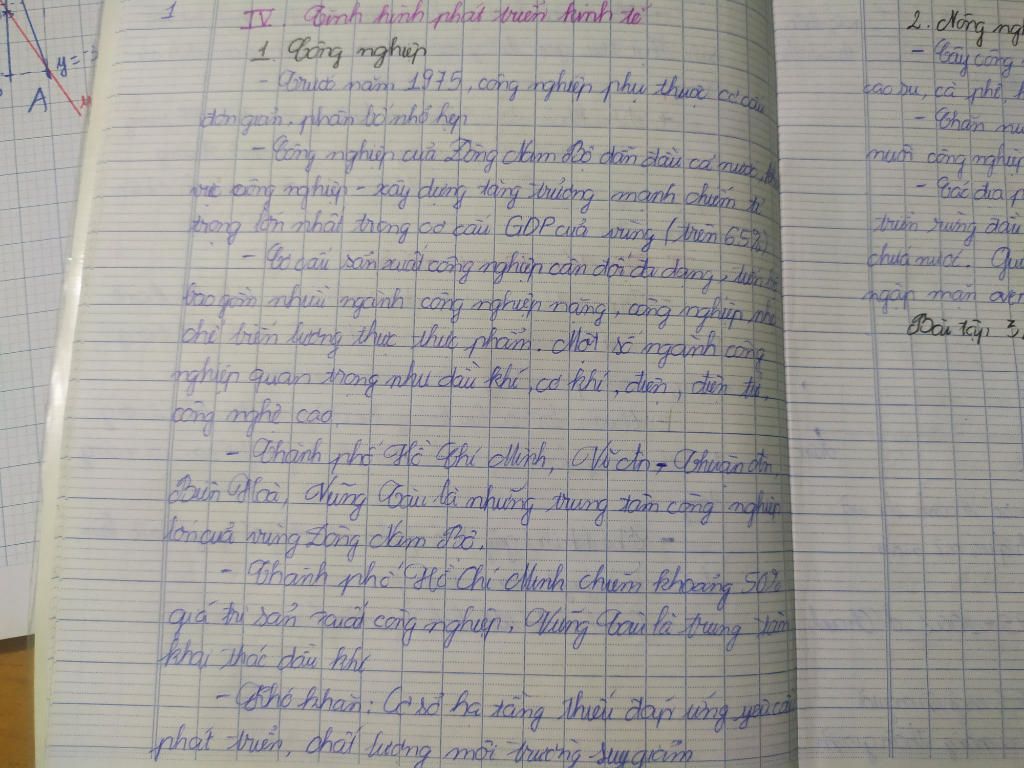 1
IV. Tình hình phát triển kinh tế
1. Công nghiệp
- Trước năm 1975, công nghiệp phụ thuộc cơ cấu
đơn giản, phân bố nhỏ hẹp
- Công nghiệp của Đông Nam Bộ dẫn đầu cả nước,
vực công nghiệp - xây dựng tăng trưởng mạnh chiếm tỉ
trọng lớn nhất trong cơ cấu GDP của vùng (trên 65%)
- Cơ cấu sản xuất công nghiệp cân đối đa dạng,
bao gồm nhiều ngành công nghiệp nặng, công nghiệp nhẹ
chế biến lương thực thực phẩm. Một số ngành công
nghiệp quan trọng như dầu khí, cơ khí, điện, điện tử,
công nghệ cao.
- Thành phố Hồ Chí Minh, - Thuận An,
Biên Hoà, Vũng Tàu là những trung tâm công nghiệp
lớn của vùng Đông Nam Bộ.
- Thành phố Hồ Chí Minh chiếm khoảng 50%
giá trị sản xuất công nghiệp, Vũng Tàu là trung tâm
khai thác dầu khí
- Khó khăn: Cơ sở hạ tầng thiếu đáp ứng yêu cầu
phát triển, chất lượng môi trường suy giảm
2. Nông ngh
- Cây công
cao su, cà phê,
- Chăn nu
nuôi công nghiệp
- Các địa p
triển rừng đầu
chứa nước.
ngập mặn
Bài tập 3,
y = -3
A